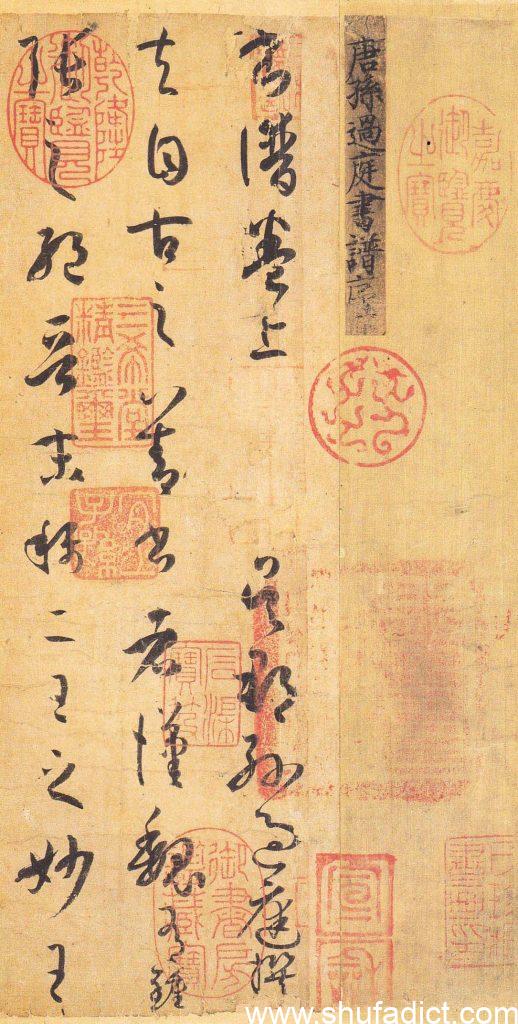 嘉慶御覽之寶
唐孫過庭書譜序
書譜卷上 吳郡孫過庭撰
夫自古之善書者漢魏有鍾
張之絕晉末稱二王之妙王
乾隆御覽之寶
三希堂精鑑璽
宜子孫
御書房鑑藏寶
www.shufadict.com